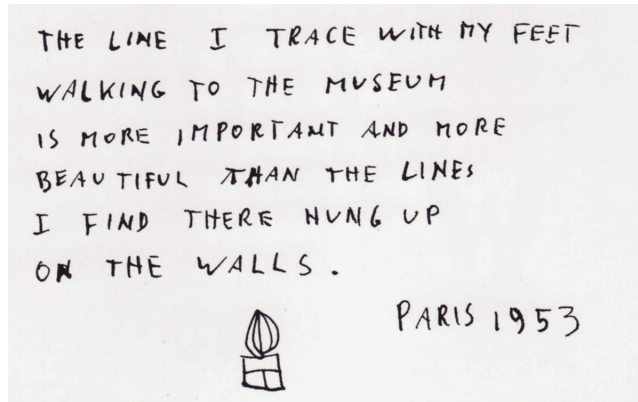 THE LINE I TRACE WITH MY FEET
WALKING TO THE MUSEUM
IS MORE IMPORTANT AND MORE
BEAUTIFUL THAN THE LINES
I FIND THERE HUNG UP
ON THE WALLS.
PARIS 1953